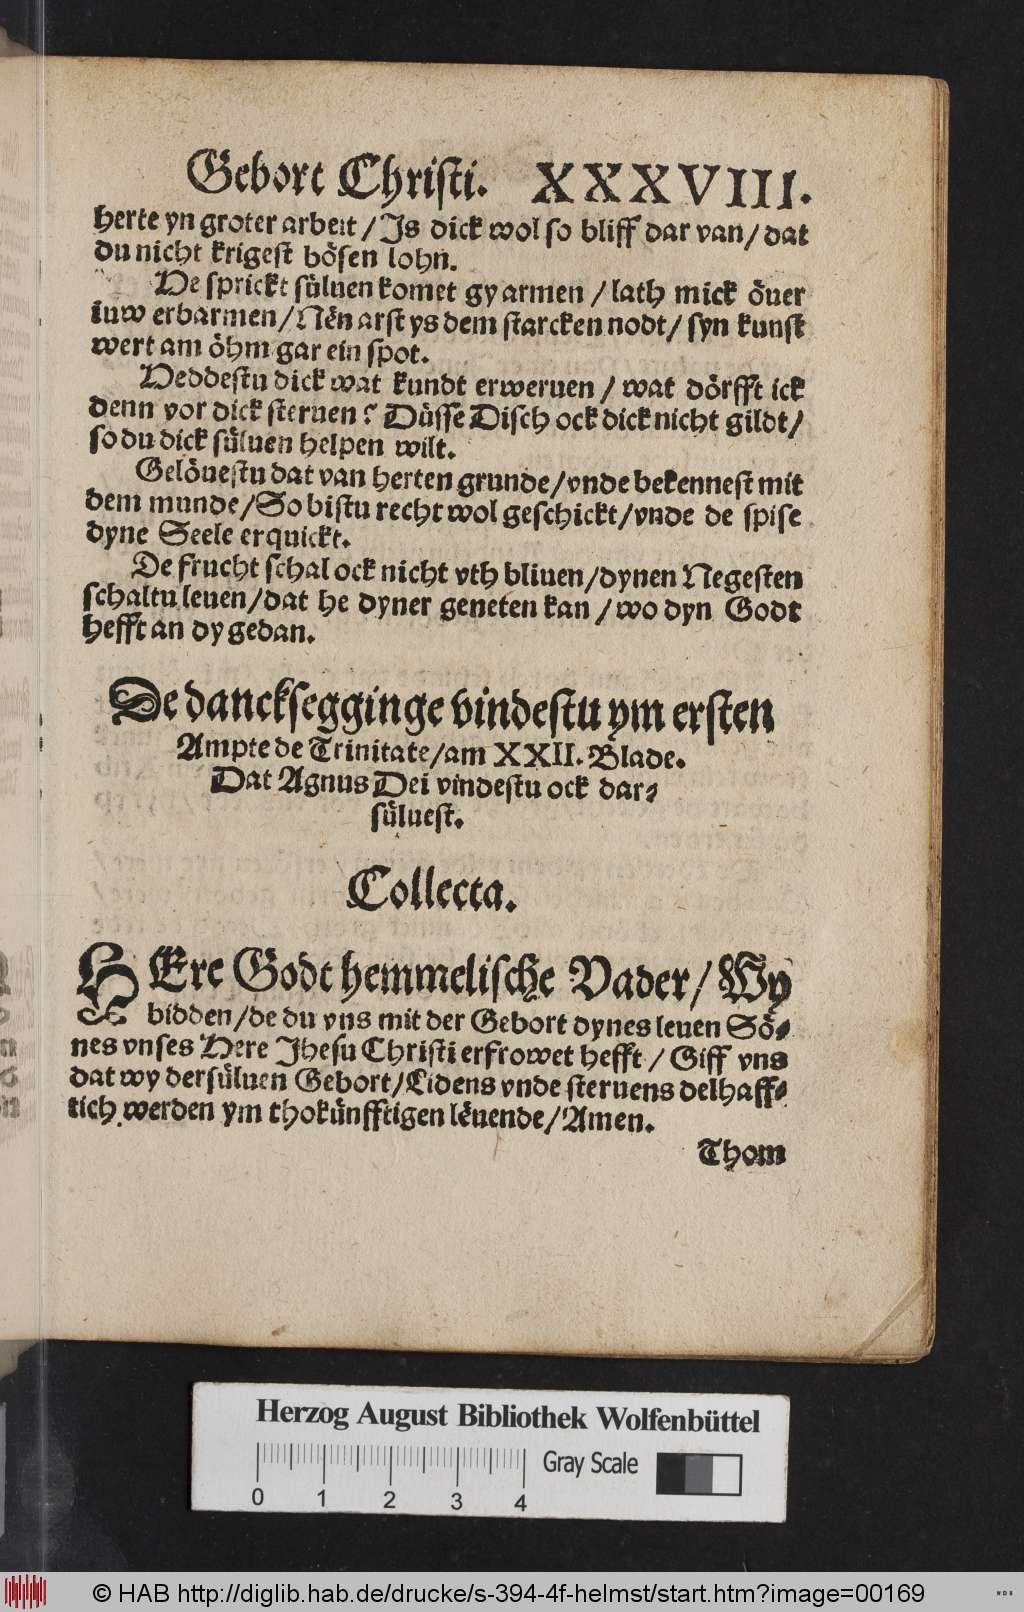 Gebort Christi. XXXVIII.
herte yn groter arbeit / Js dick wol so bliff dar van / dat
du nicht krigest bösen lohn.
He sprickt süluen komet gy armen / lath mick öuer
iuw erbarmen / Nën arst ys dem starcken nodt / syn kunst
wert am öhm gar ein spot.
Heddestu dick wat kundt erweruen / wat dörfft ick
denn vor dick steruen? Düsse Disch ock dick nicht gildt /
so du dick süluen helpen wilt.
Gelöuestu dat van herten grunde / vnde bekennest mit
dem munde / So bistu recht wol geschickt / vnde de spise
dyne Seele erquickt.
De frucht schal ock nicht vth bliuen / dynen Negesten
schaltu leuen / dat he dyner geneten kan / wo dyn Godt
hefft an dy gedan.
De dancksegginge vindestu ym ersten
Ampte de Trinitate / am XXII. Blade.
Dat Agnus Dei vindestu ock dar⸗
süluest.
Collecta.
HEre Godt hemmelische Vader / Wy
bidden / de du vns mit der Gebort dynes leuen Sö⸗
nes vnses Here Jhesu Christi erfrowet hefft / Giff vns
dat wy dersüluen Gebort / Lidens vnde steruens delhaff⸗
tich werden ym thokünfftigen lëuende / Amen.
Thom
Herzog August Bibliothek Wolfenbüttel
Gray Scale
0 1 2 3 4
© HAB http://diglib.hab.de/drucke/s-394-4f-helmst/start.htm?image=00169